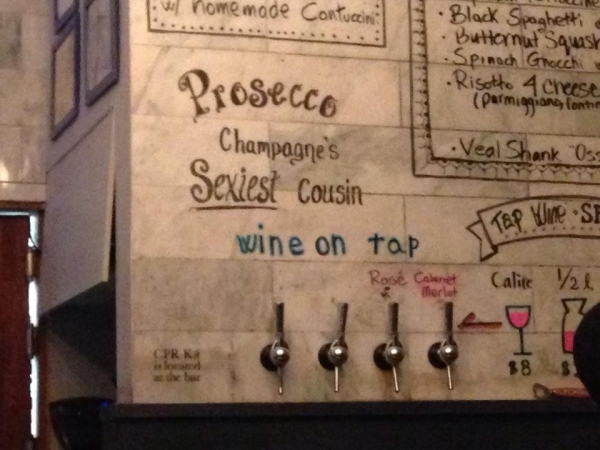 w/ homemade Cantuccini
Prosecco
Champagne's
Sexiest Cousin
wine on tap
Rosé
Cabernet
Merlot
CPR Kit
is located
at the bar
Black Spaghetti
Butternut Squash
Spinach Gnocchi
Risotto 4 cheese
(Parmiggiano, Fontin
Veal Shank "Oss
TAP WINE • SP
Calice 1/2 l
$8 $